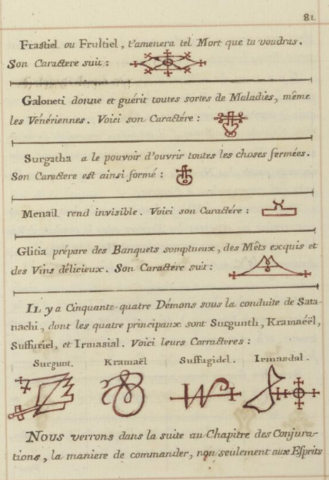 81.
Frastiel ou Frultiel, t'amenera tel Mort que tu voudras.
Son Caractere suit :
Galoneti donne et guérit toutes sortes de Maladies, même
les Vénériennes. Voici son Caractére :
Surgatha a le pouvoir d'ouvrir toutes les choses fermées.
Son Caractere est ainsi formé :
Menail rend invisible. Voici son Caractére :
Glitia prépare des Banquets somptueux, des Mêts exquis et
des Vins délicieux. Son Caractere suit :
IL y a Cinquante-quatre Démons sous la conduite de Sata-
nachi, dont les quatre principaux sont Surgunth, Kramaéël,
Suffuriel, et Irmasial. Voici leurs Carracteres :
Surgunt. Kramaël Suffugidel. Irmasdal.
NOUS verrons dans la suite au Chapitre des Conjura-
tions, la maniere de commander, non seulement aux Esprits